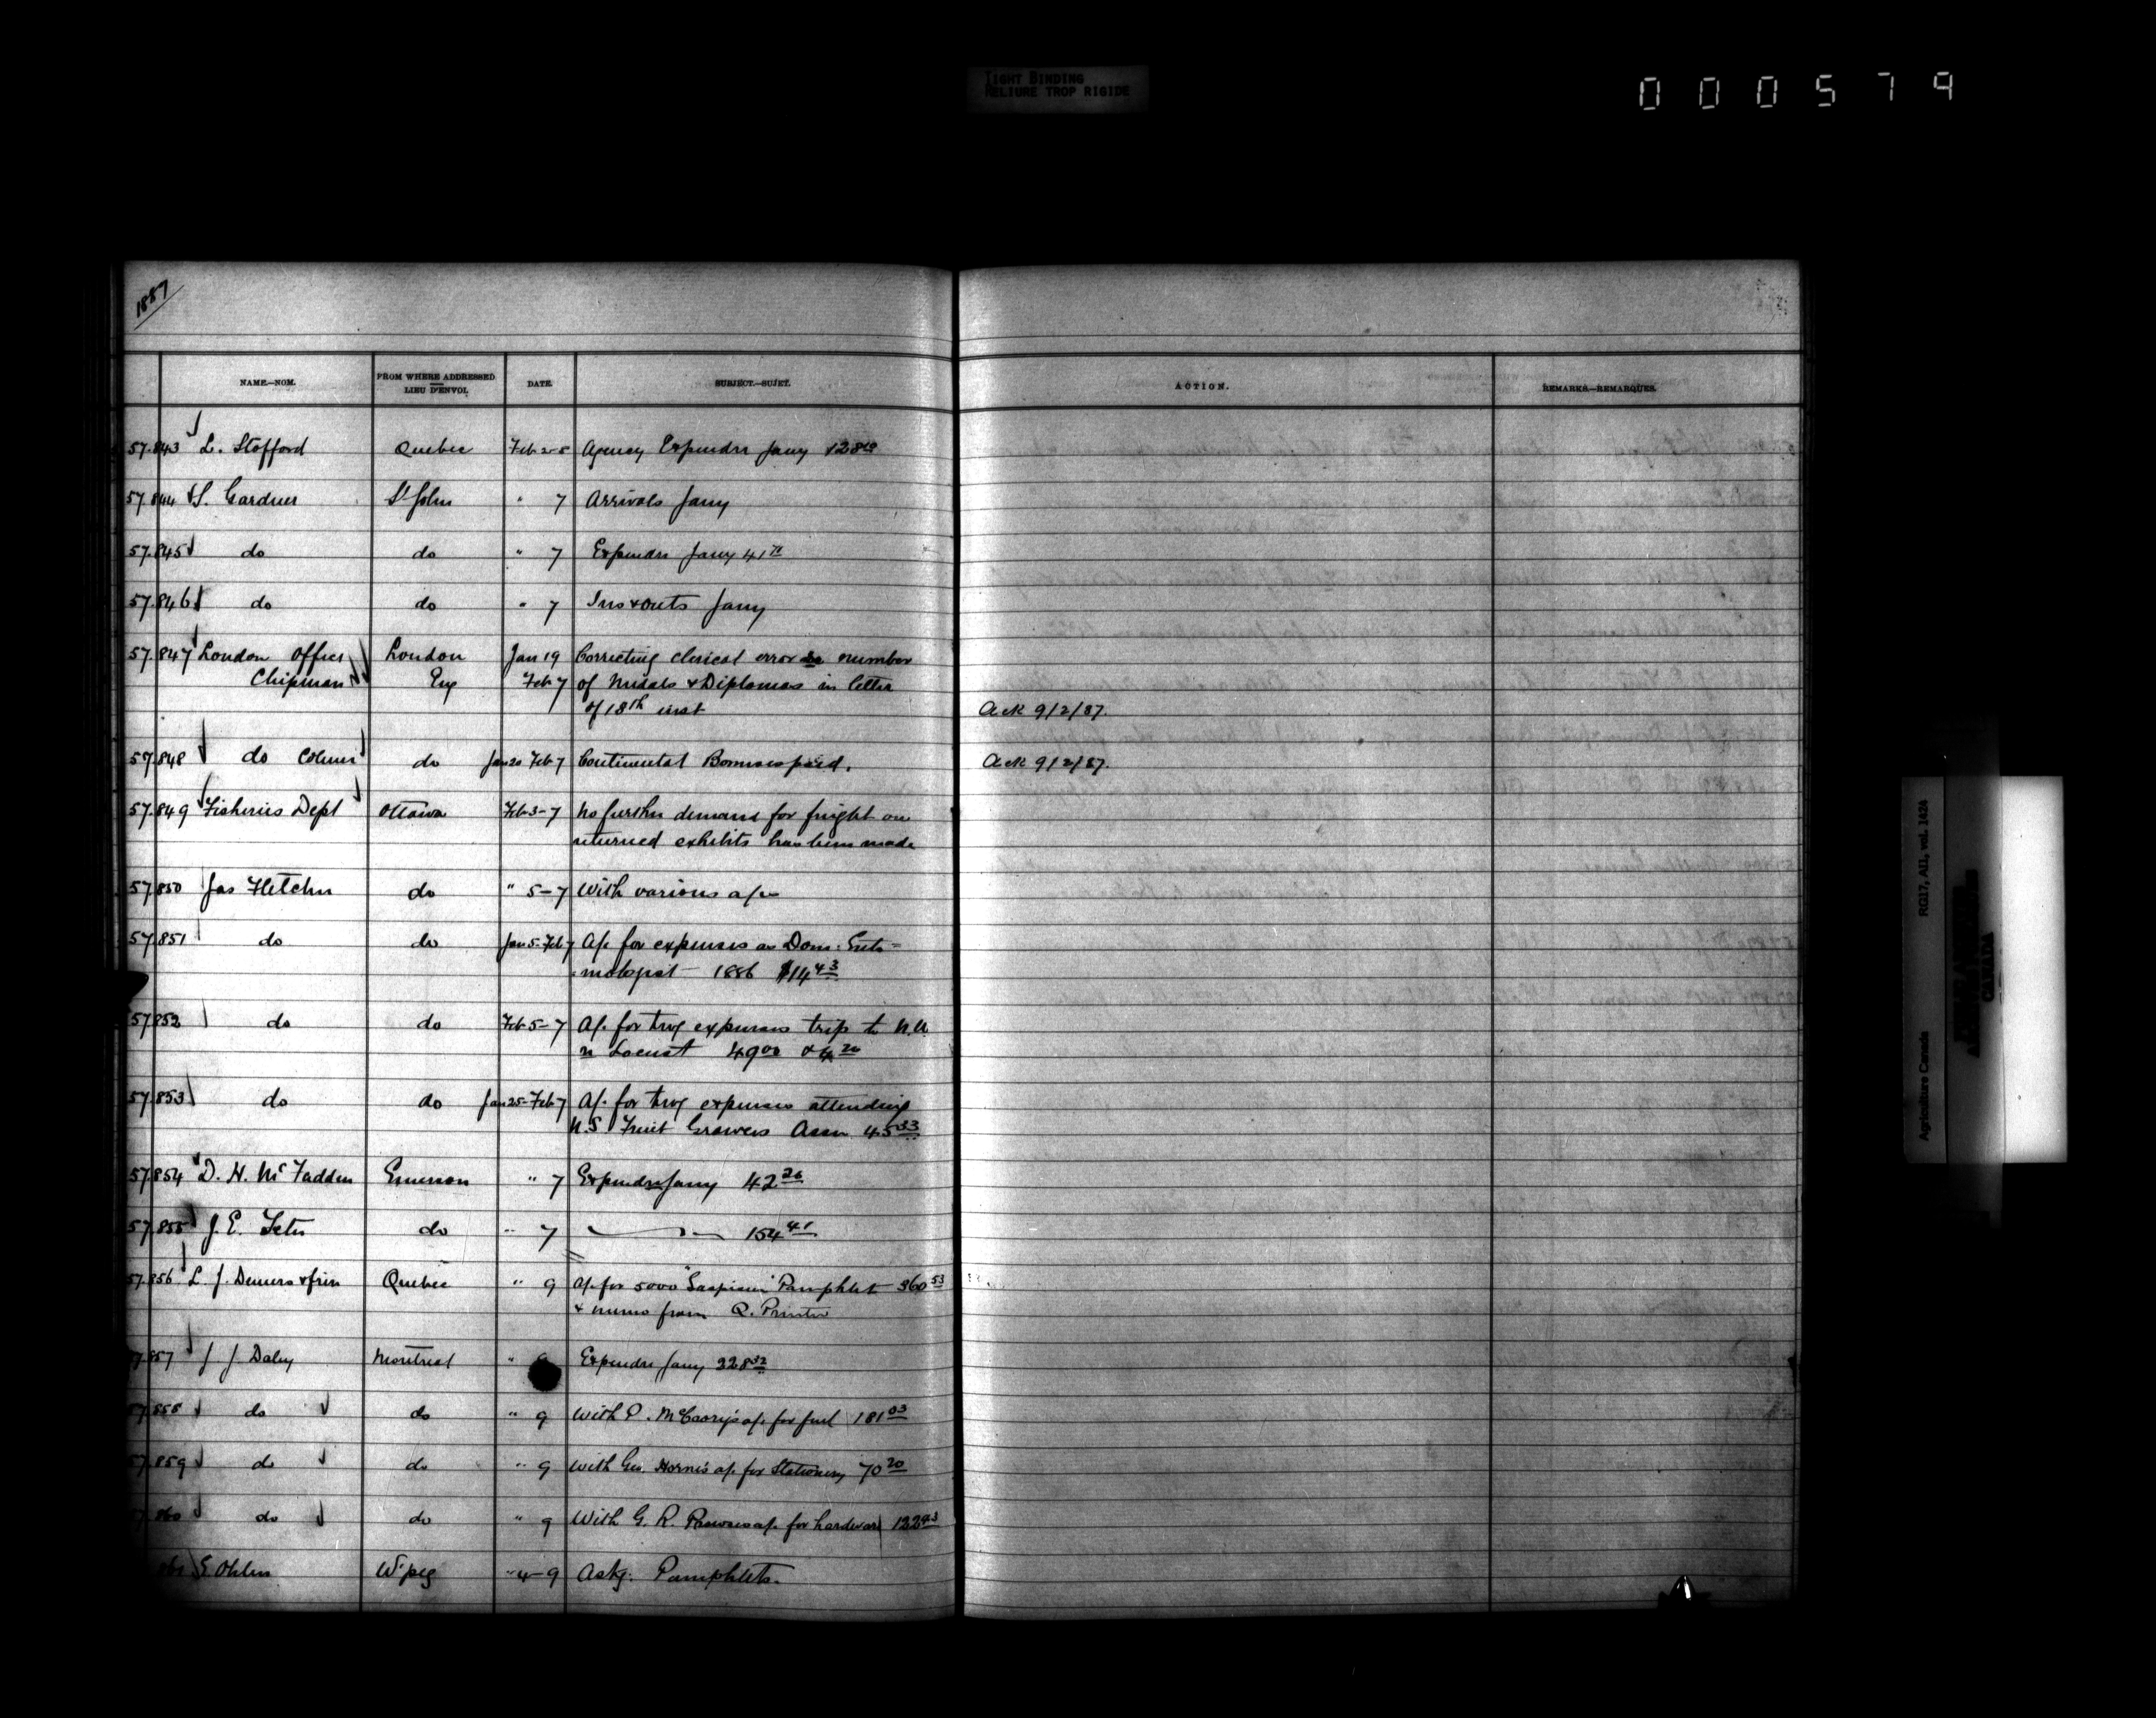 TIGHT BINDING
RELIURE TROP RIGIDE
000579
1887
NAME.—NOM.
FROM WHERE ADDRESSED
LIEU D'ENVOI.
DATE.
SUBJECT.—SUJET.
ACTION.
REMARKS.—REMARQUES.
57.843 L. Stafford Quebec Feb 2-5 Agency Expendre Jany
57.844 S. Gardner St John " 7 Arrivals Jany
57.845 do do " 7 Expendre Jany 41
57.846 do do " 7 Ins & outs Jany
57.847 London Office London Jan 19 Correcting clerical error number
Chipman Eng Feb 7 of Medals & Diplomas in letter
of 18th inst Ack 9/2/87.
57.848 do Colmer do Jan 20 Feb 7 Continental Bonuses paid. Ack 9/2/87.
57.849 Fisheries Dept Ottawa Feb 3-7 No further demand for freight on
returned exhibits has been made
57.850 Jas Fletcher do " 5-7 With various a/cs
57.851 do do Jan 5-Feb 7 A/c for expenses as Dom: Ento=
mologist 1886 $14 43
57.852 do do Feb 5-7 A/c for trvg expenses trip to N.W.
re Locust 49 00 & 4 20
57.853 do do Jan 25-Feb 7 A/c for trvg expenses attending
N.S Fruit Growers Assn 45 33
57.854 D. H. McFadden Emerson " 7 Expendre Jany 42 26
57.855 J. E. Tetu do " 7 154 41
57.856 L. J. Demers & frère Quebec " 9 A/c for 5000 "Gaspésie" Pamphlet 360 53
& memo from Q. Printer
57.857 J J Daley Montreal " 9 Expendre Jany 228 32
57.858 do do " 9 With P. McCrory's a/c for fuel 181 03
57.859 do do " 9 With Geo. Horne's a/c for Stationery 70 20
57.860 do do " 9 With G. R. a/c for hardware 122 43
861 E. Ohlen W'peg " 4-9 Askg. Pamphlets.
RG17, AII, vol. 1424
Agriculture Canada
CANADA